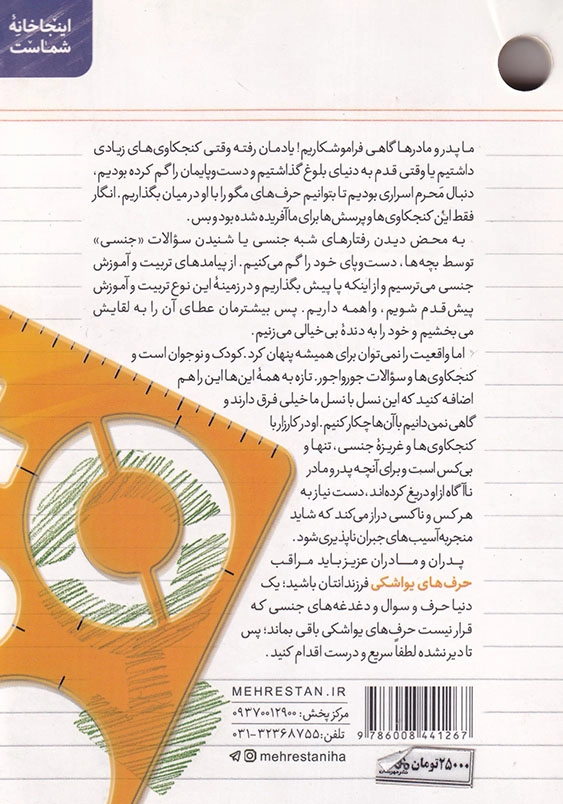 اینجا خانهٔ
شماست
ما پدر و مادرها گاهی فراموشکاریم! یادمان رفته وقتی کنجکاوی‌های زیادی
داشتیم یا وقتی قدم به دنیای بلوغ گذاشتیم و دست‌وپایمان را گم کرده بودیم،
دنبال مَحرم اسراری بودیم تا بتوانیم حرف‌های مگو را با او در میان بگذاریم. انگار
فقط این کنجکاوی‌ها و پرسش‌ها برای ما آفریده شده بود و بس.
به محض دیدن رفتارهای شبه جنسی یا شنیدن سؤالات «جنسی»
توسط بچه‌ها، دست‌وپای خود را گم می‌کنیم. از پیامدهای تربیت و آموزش
جنسی می‌ترسیم و از اینکه پا پیش بگذاریم و در زمینهٔ این نوع تربیت و آموزش
پیش‌قدم شویم، واهمه داریم. پس بیشترمان عطای آن را به لقایش
می‌بخشیم و خود را به دندهٔ بی‌خیالی می‌زنیم.
اما واقعیت را نمی‌توان برای همیشه پنهان کرد. کودک و نوجوان است و
کنجکاوی‌ها و سؤالات جورواجور. تازه به همهٔ این‌ها این را هم
اضافه کنید که این نسل با نسل ما خیلی فرق دارند و
گاهی نمی‌دانیم با آن‌ها چکار کنیم. او در کارزار با
کنجکاوی‌ها و غریزهٔ جنسی، تنها و
بی‌کس است و برای آنچه پدر و مادر
ناآگاه از او دریغ کرده‌اند، دست نیاز به
هر کس و ناکسی دراز می‌کند که شاید
منجر به آسیب‌های جبران‌ناپذیری شود.
پدران و مادران عزیز باید مراقب
حرف‌های یواشکی فرزندانتان باشید؛ یک
دنیا حرف و سوال و دغدغه‌های جنسی که
قرار نیست حرفِ‌های یواشکی باقی بماند؛ پس
تا دیر نشده لطفاً سریع و درست اقدام کنید.
MEHRESTAN.IR
مرکز پخش: ۰۹۳۷۰۰۱۲۹۰۰
تلفن: ۰۳۱-۳۲۳۶۸۷۵۵
mehrestaniha
9 786008 441267
۲۵۰۰۰ تومان